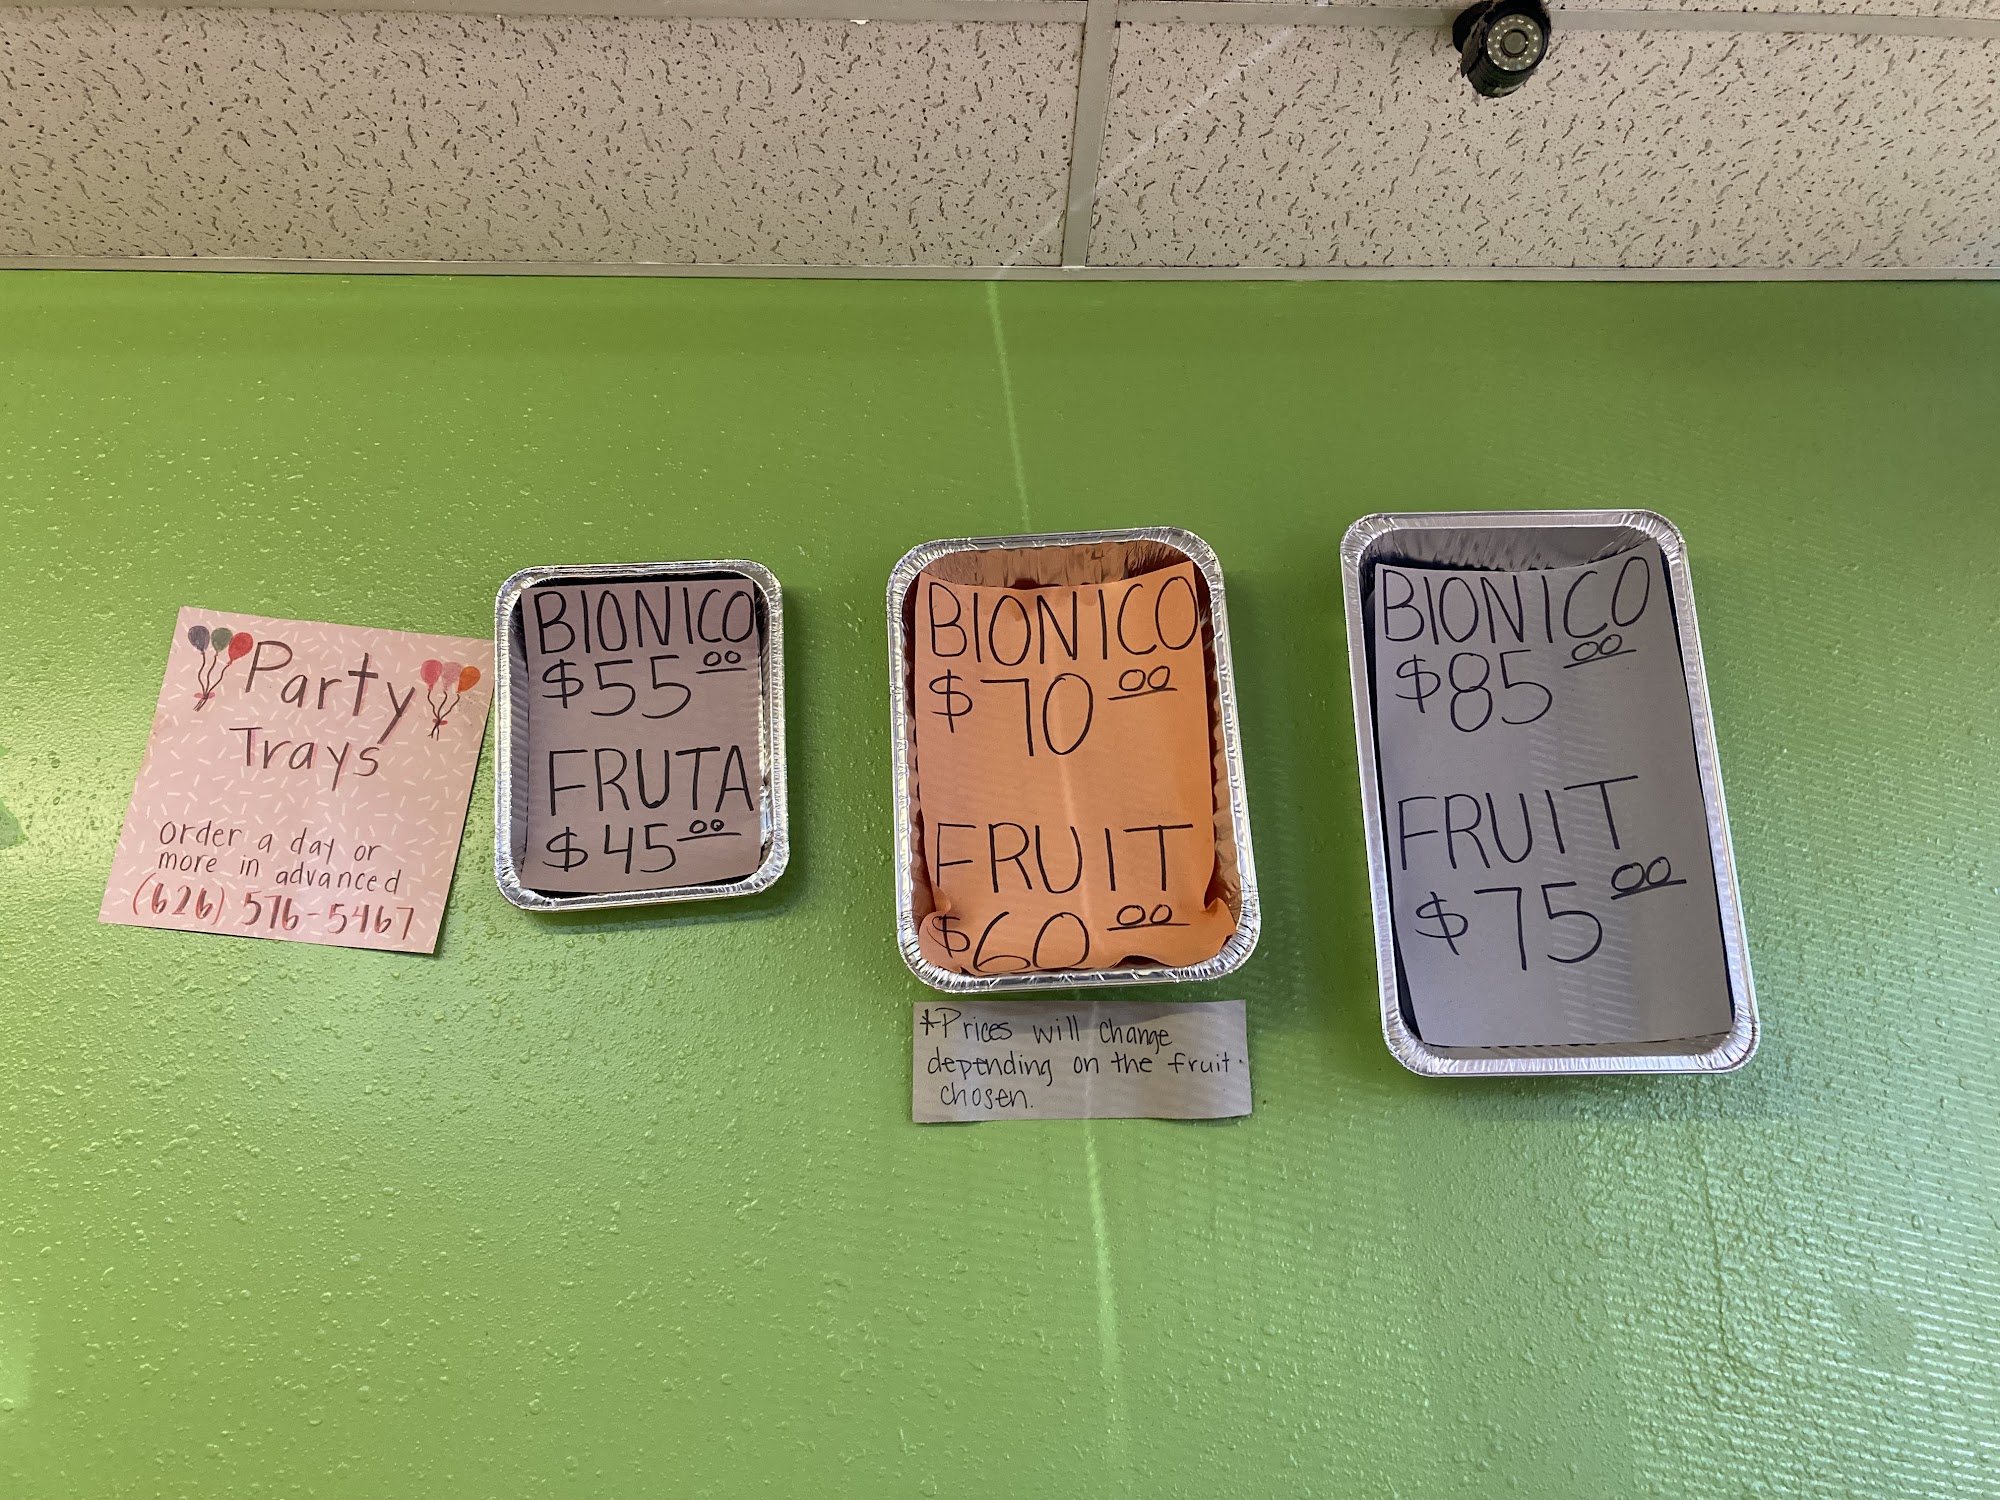 Party
Trays
order a day or
more in advanced
(626) 576-5467
BIONICO
$55.00
FRUTA
$45.00
BIONICO
$70.00
FRUIT
$60.00
*Prices will change
depending on the fruit
chosen.
BIONICO
$85.00
FRUIT
$75.00